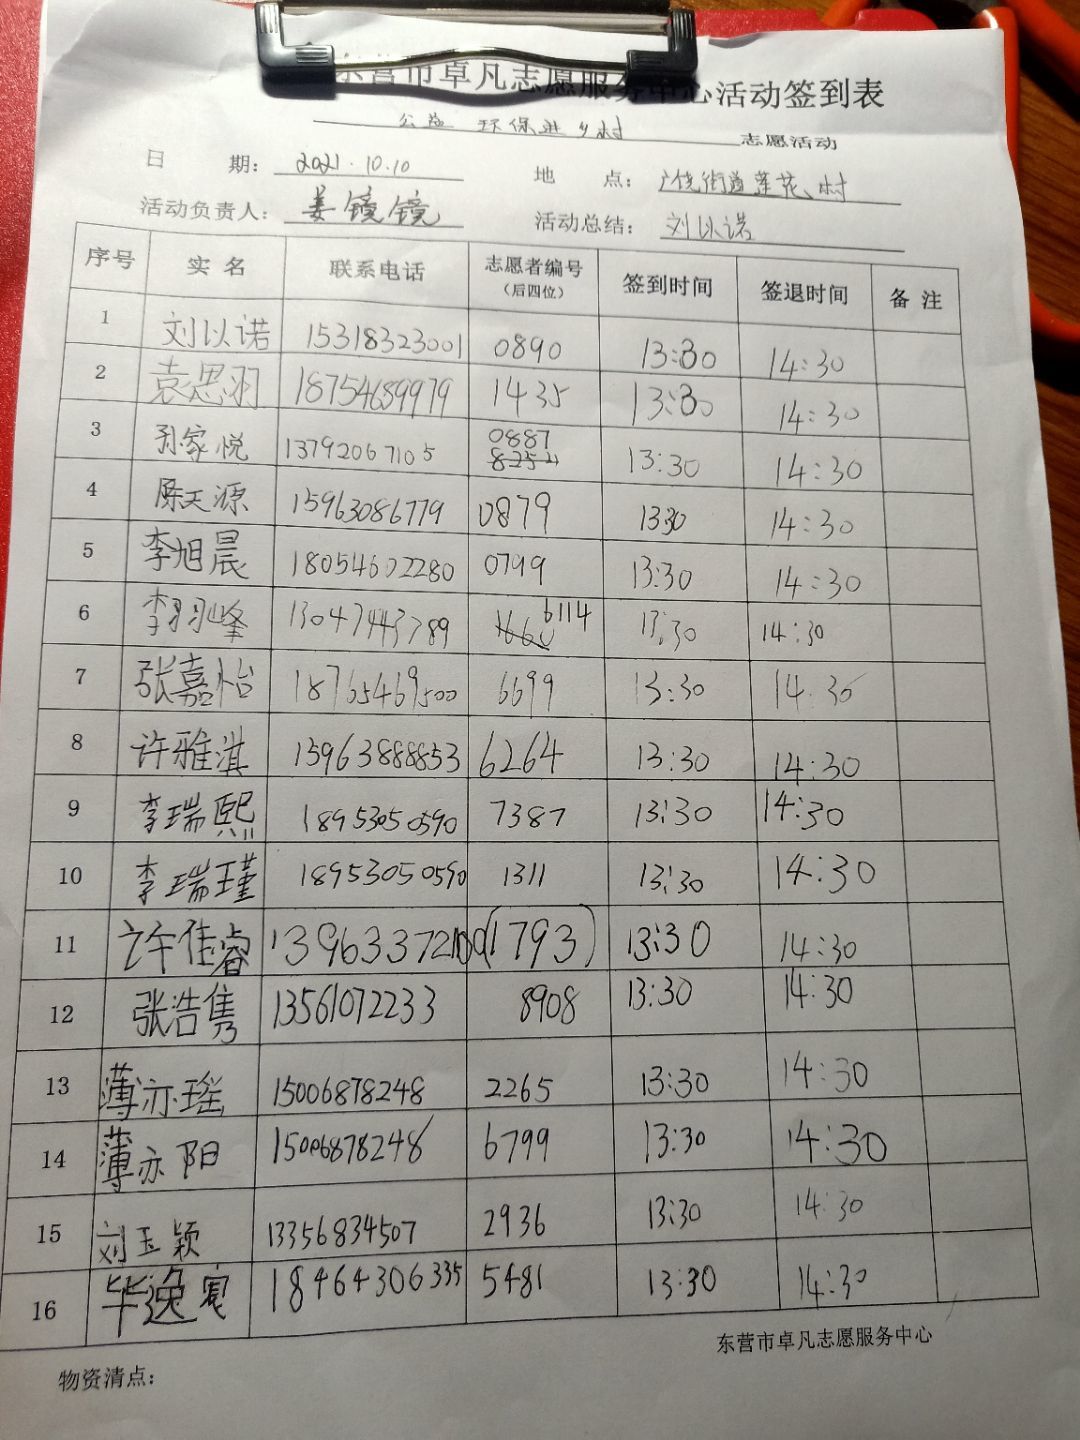 东营市卓凡志愿服务中心活动签到表
公益 环保进乡村 志愿活动
日 期: 2021.10.10 地 点: 广饶街道莲花村
活动负责人: 姜镜镜 活动总结: 刘以诺
序号 实 名 联系电话 志愿者编号 (后四位) 签到时间 签退时间 备 注
1 刘以诺 15318323001 0890 13:30 14:30
2 袁思羽 18754689979 1435 13:30 14:30
3 孙家悦 13792067105 0887 13:30 14:30
4 陈天源 15963086779 0879 1330 14:30
5 李旭晨 18054602280 0799 13:30 14:30
6 李羽峰 13047443789 6114 13:30 14:30
7 张嘉怡 18765469500 6699 13:30 14:30
8 许雅淇 15963888853 6264 13:30 14:30
9 李瑞熙 18953050590 7387 13:30 14:30
10 李瑞瑾 18953050590 1311 13:30 14:30
11 许佳睿 13963372100 (1793) 13:30 14:30
12 张浩隽 13561072233 8908 13:30 14:30
13 薄亦瑶 15006878248 2265 13:30 14:30
14 薄亦阳 15006878248 6799 13:30 14:30
15 刘玉颖 13356834507 2936 13:30 14:30
16 毕逸 18464306335 5481 13:30 14:30
东营市卓凡志愿服务中心
物资清点: